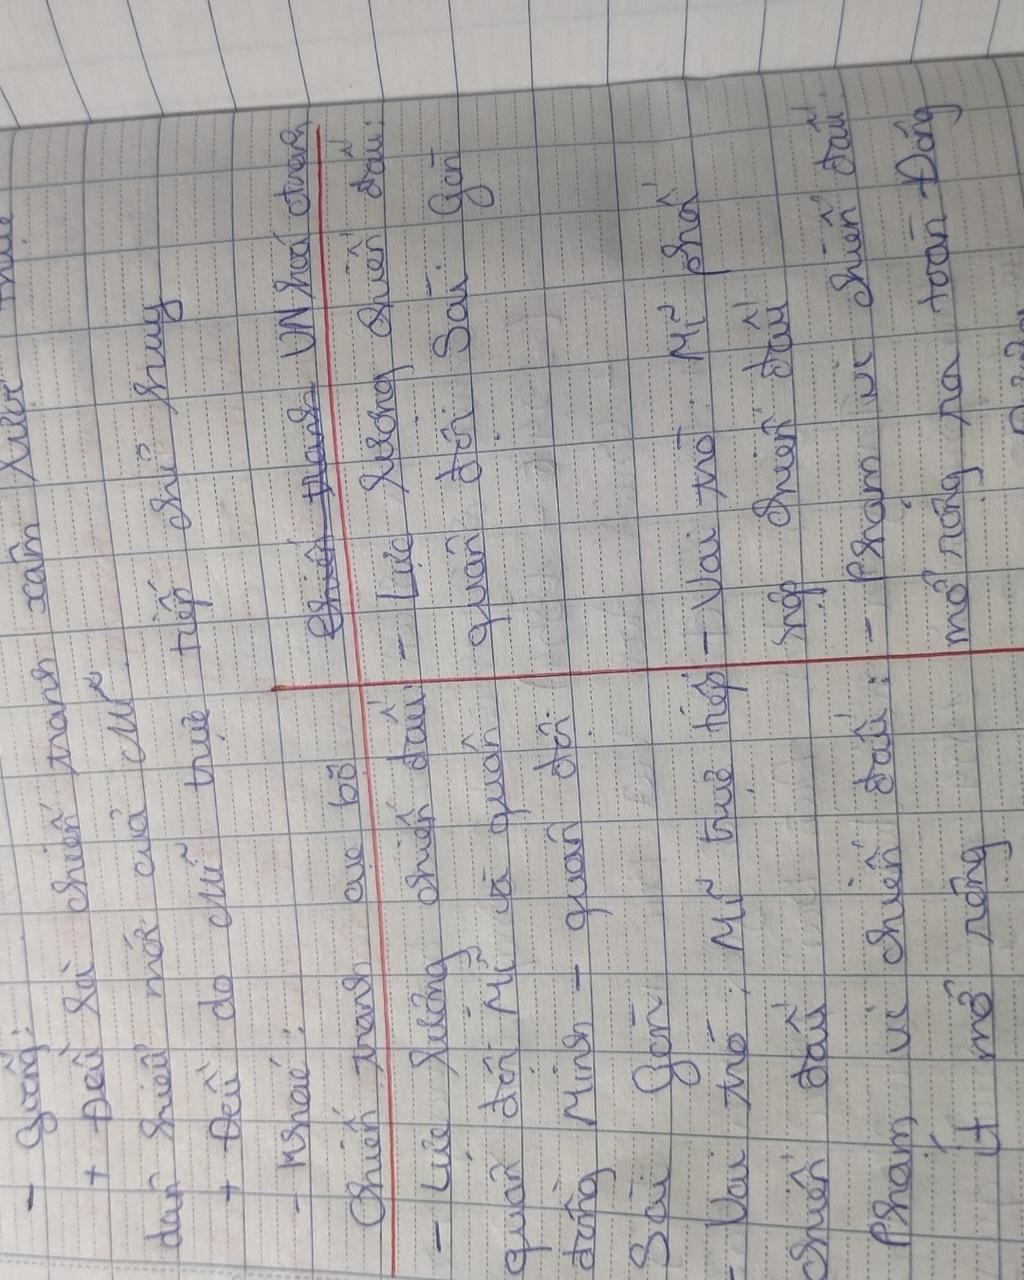 - Giống:
+ Đều là chiến tranh xâm lược thực
dân kiểu mới của Mỹ.
+ Đều do Mĩ trực tiếp chỉ huy
- Khác:
Chiến tranh cục bộ
- Lực lượng chiến đấu:
quân đội Mĩ và quân
đồng Minh - quân đội
Sài Gòn
- Vai trò: Mĩ trực tiếp
chiến đấu
Phạm vi chiến đấu:
Ít mở rộng
Chiến tranh VN hoá
- Lực lượng chiến đấu:
quân đội Sài Gòn
- Vai trò: Mĩ phối
hợp chiến đấu
- Phạm vi chiến đấu
mở rộng ra toàn Đông